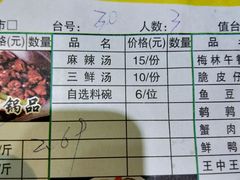 市□ 台号: 30 人数: 3 值台
格(元) 数量 品名 价格(元) 数量 品
麻辣汤 15/份 梅林午餐
三鲜汤 10/份 脆皮仔
自选料碗 6/位 鱼豆
锅品 鹌鹑
蟹肉
/斤 鲜鸭
/斤 王中王